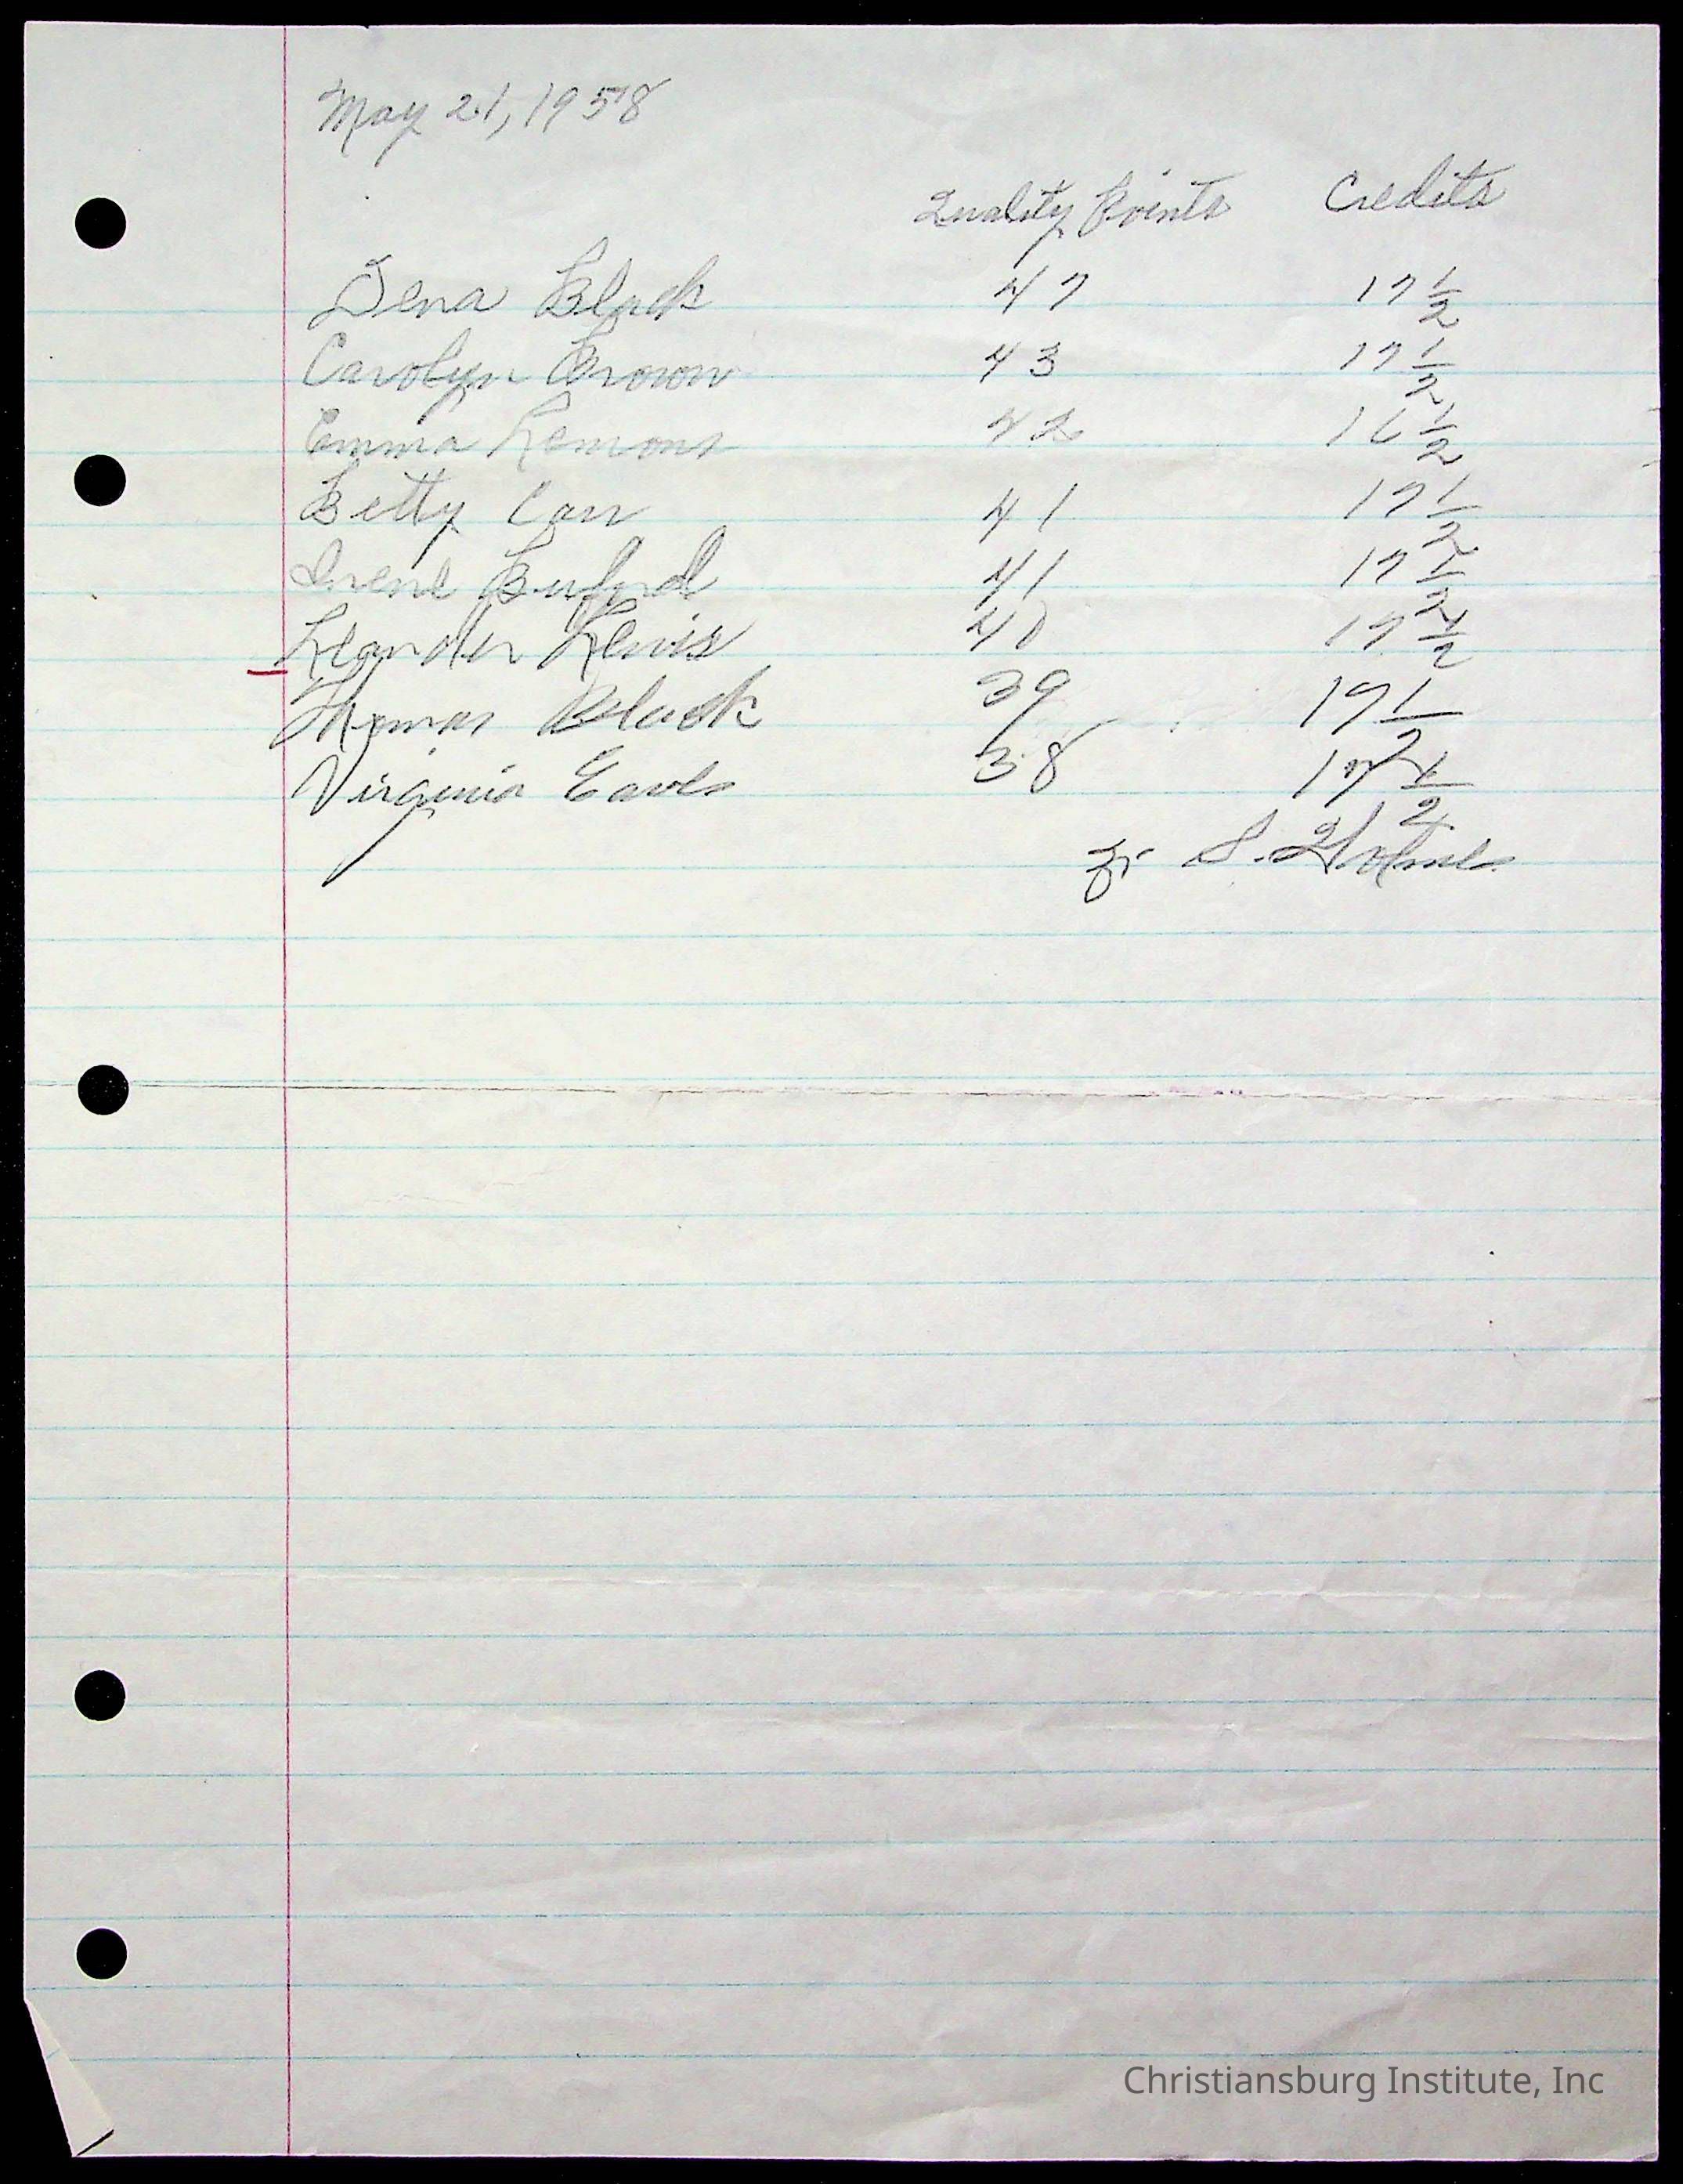 May 21, 1958
Quality Points Credits
Dena Black 47 17 1/2
Carolyn Brown 43 17 1/2
Emma Lemons 42 16 1/2
Betty Carr 41 17 1/2
Irene Buford 41 17 1/2
Leander Lewis 40 17 1/2
Thomas Black 39 17 1/2
Virginia Earls 38 17 1/2
S. Holmes
Christiansburg Institute, Inc